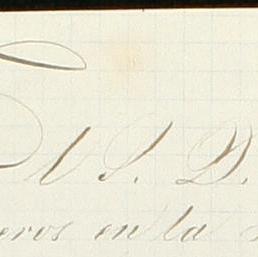 El S. D.
eros en la